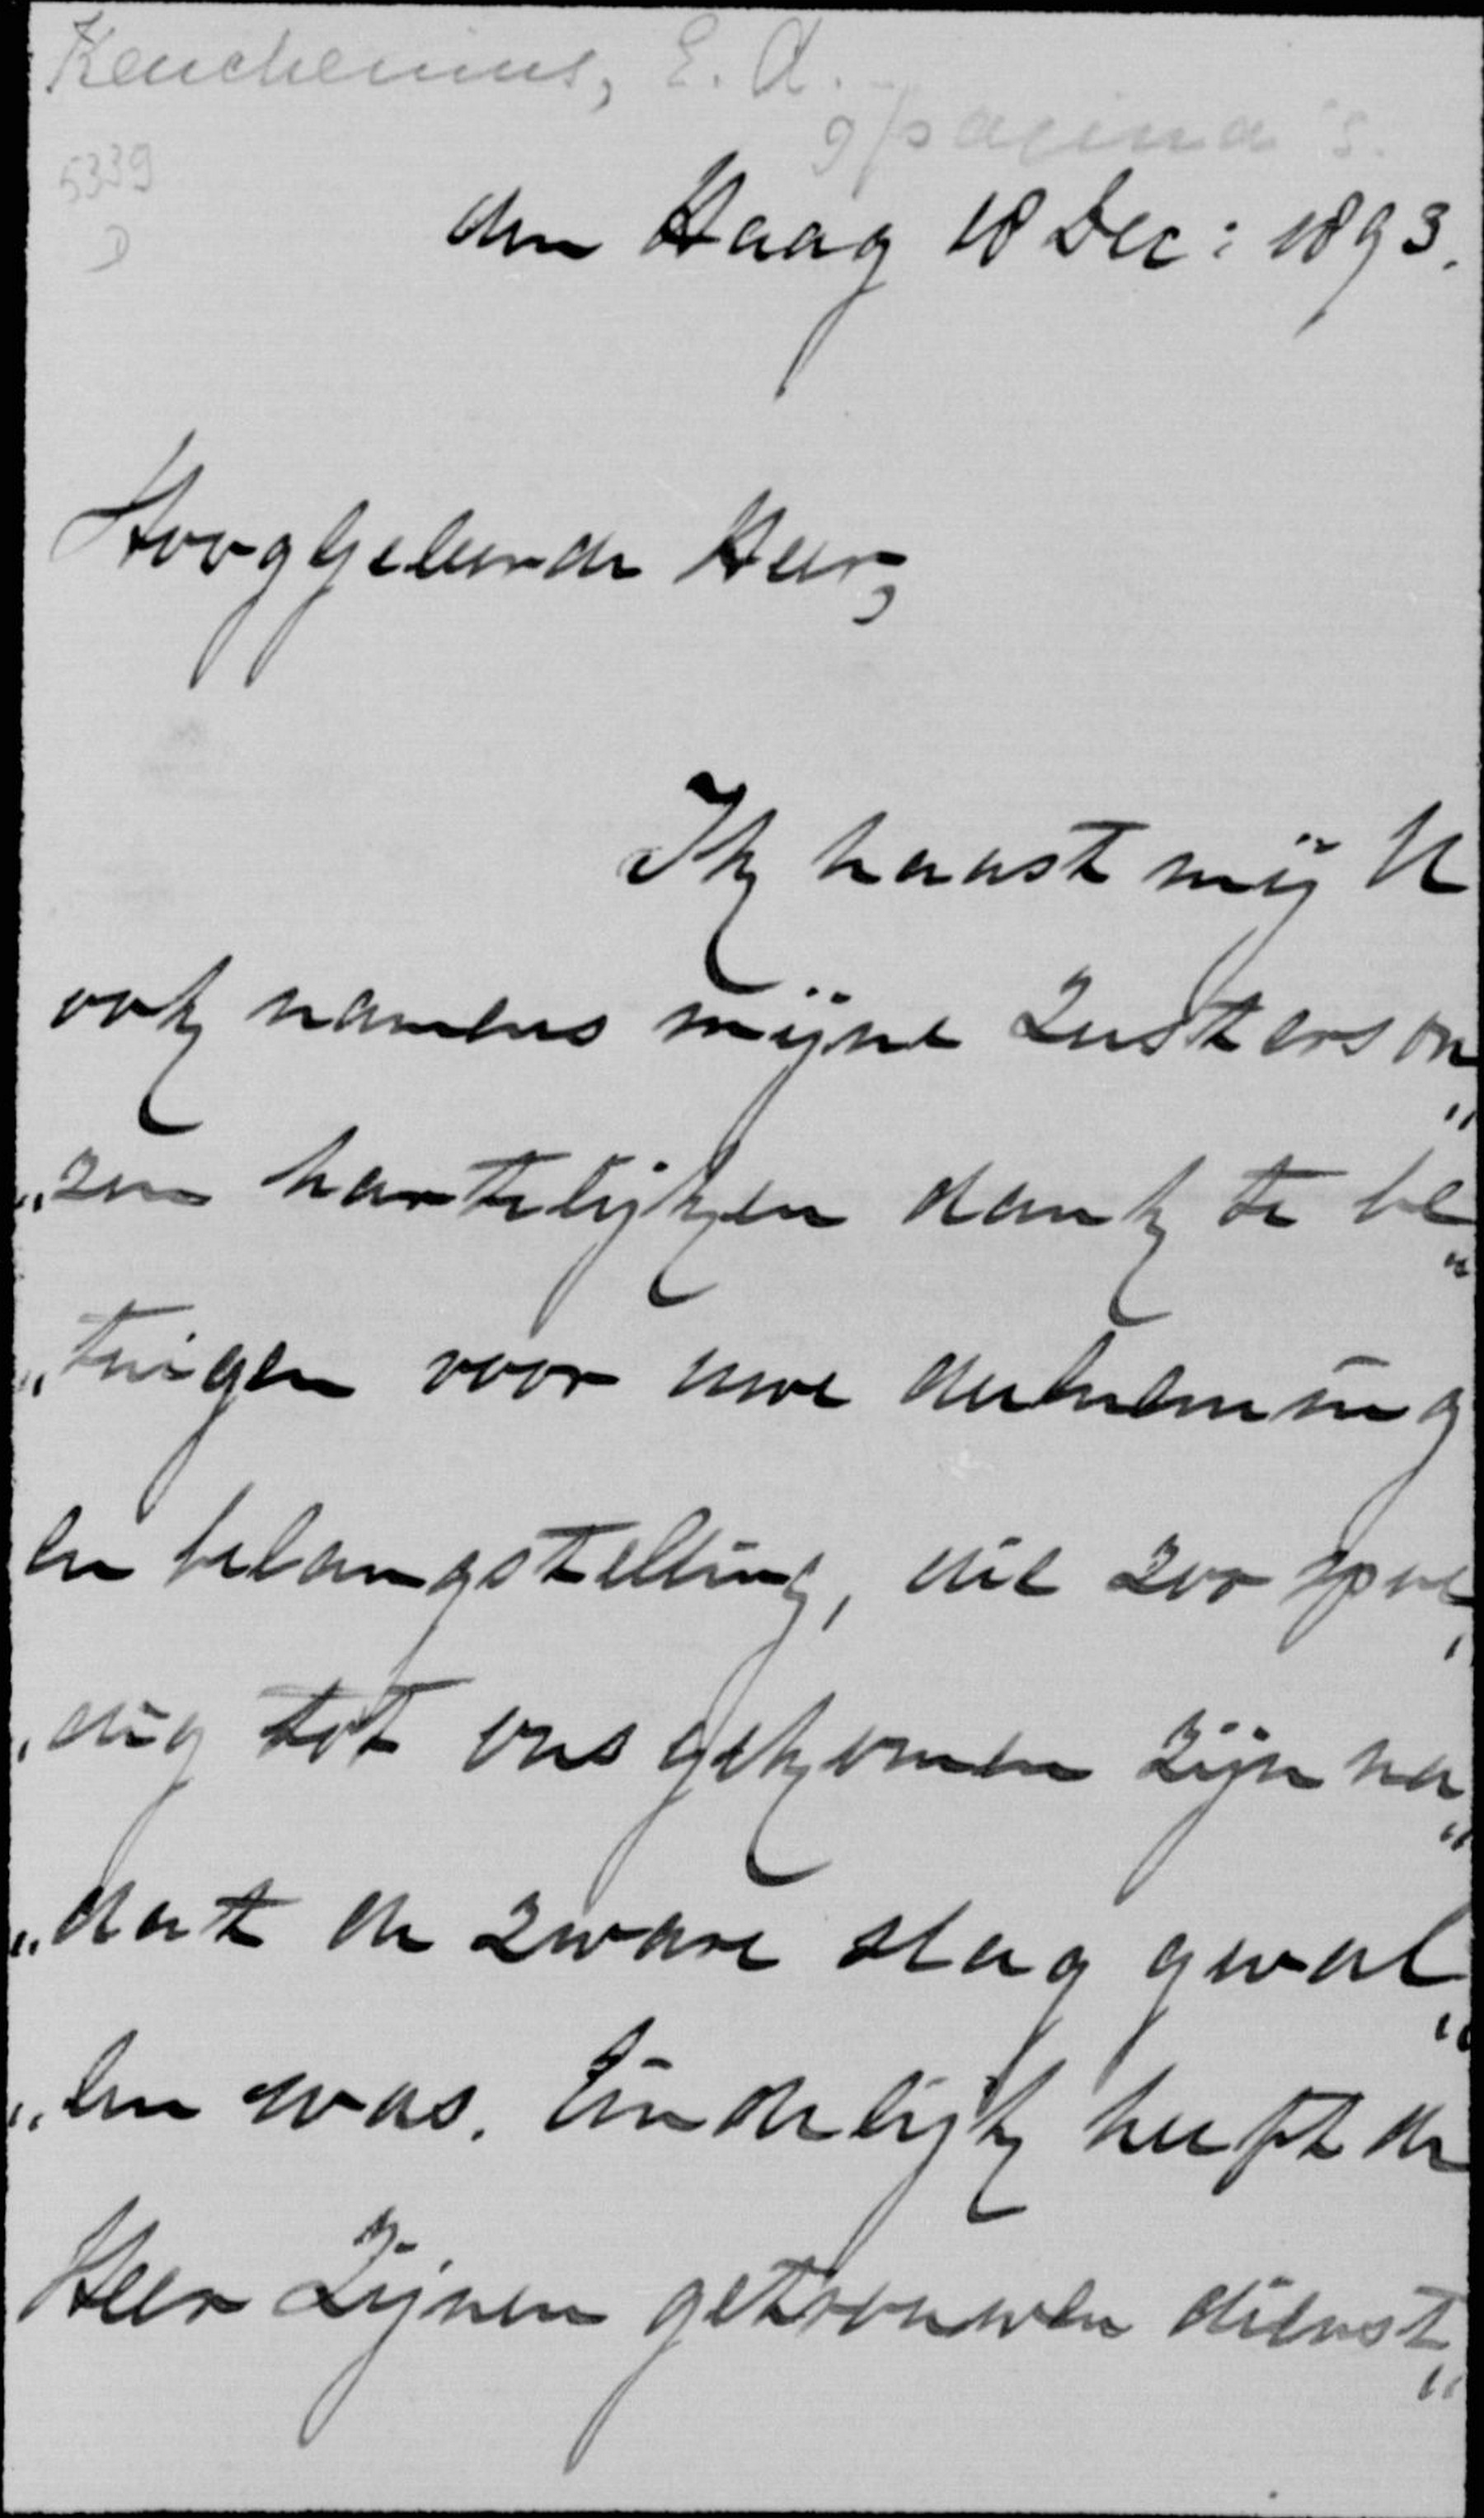 Keuchenius, E. A.
9 pagina's.
5339
D
den Haag 18 Dec: 1893.
Hooggeleerde Heer,
Ik haast mij U
ook namens mijne Zusters on„
„zen hartelijken dank te be„
„tuigen voor uwe deelneming
en belangstelling, die zoo spoe„
„dig tot ons gekomen zijn na„
„dat de zware slag geval„
„len was. Eindelijk heeft de
Heer Zijnen getrouwen dienst„